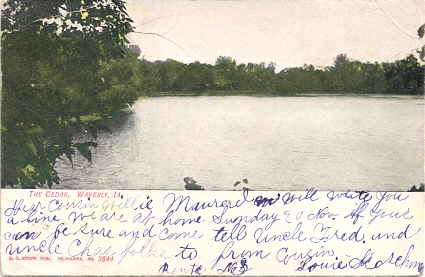 THE CEDAR, WAVERLY, IA.
Dear Cousin Willie will write you
a line. we are at home Sunday 20 Nov. if you
can be sure and come tell Uncle Fred, and
Uncle Chas folks to from Cousin
E. C. KROPP PUBL. MILWAUKEE, NO. 3544
Route No 2 Louis